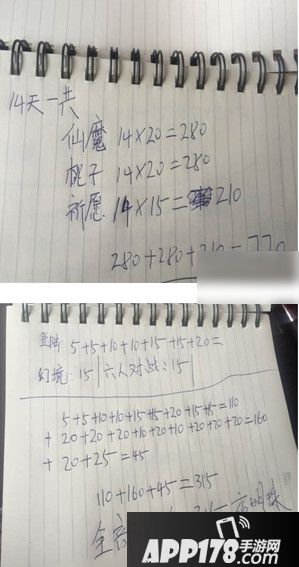 14天一共
仙魔 14×20=280
桃子 14×20=280
祈愿 14×15=210
280+280+210=770
登陆: 5+5+10+10+15+15+20=
幻境: 15 | 六人对战: 15 |
5+5+10+10+15+15+20+15+15=110
+ 20+20+20+10+20+10+20+20+20=160
+ 20+25=45
110+160+45=315
全部
APP178手游网
www.app178.com